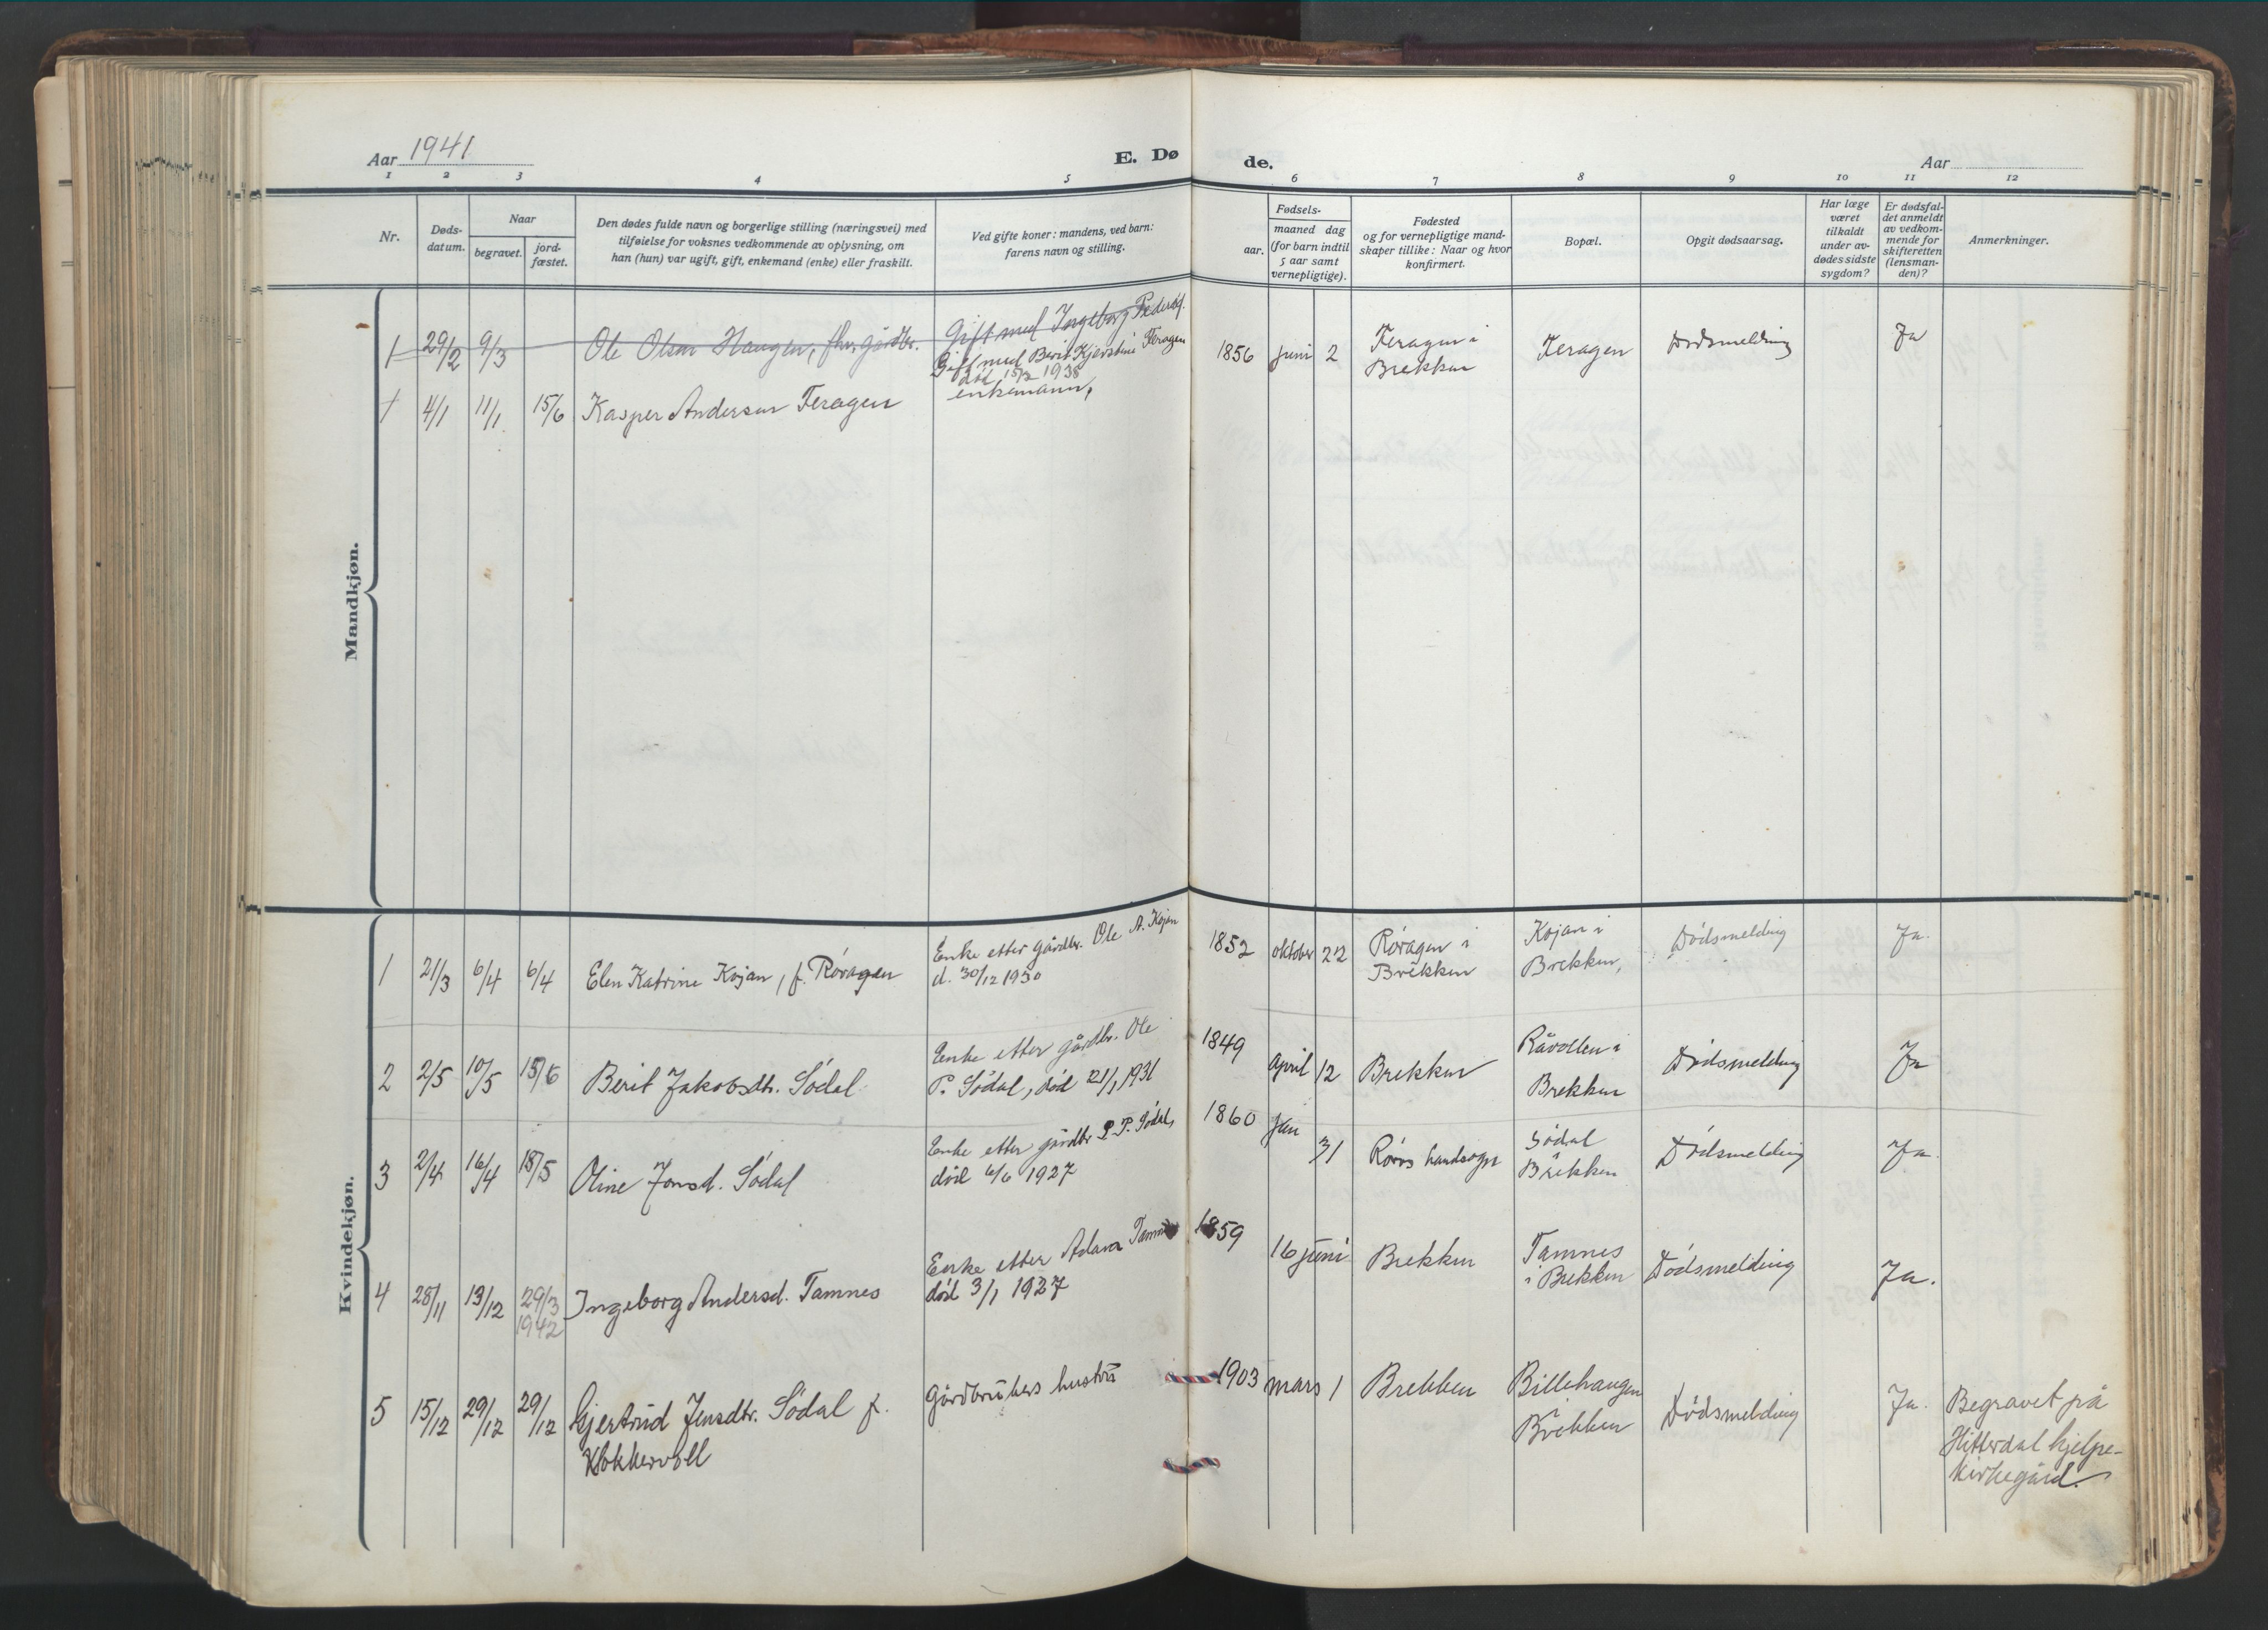 Aar 1941
E. Dø
de.
Aar
1 2 3 4 5 6 7 8 9 10 11 12
Nr.
Døds-
datum.
Naar
begravet.
jord-
fæstet.
Den dødes fulde navn og borgerlige stilling (næringsvei) med
tilføielse for voksnes vedkommende av oplysning, om
han (hun) var ugift, gift, enkemand (enke) eller fraskilt.
Ved gifte koner: mandens, ved barn:
farens navn og stilling.
Fødsels-
aar.
maaned dag
(for barn indtil
5 aar samt
vernepligtige).
Fødested
og for vernepligtige mand-
skaper tillike: Naar og hvor
konfirmert.
Bopæl.
Opgit dødsaarsag.
Har læge
været
tilkaldt
under av-
dødes sidste
sygdom?
Er dødsfal-
det anmeldt
av vedkom-
mende for
skifteretten
(lensman-
den)?
Anmerkninger.
Mandkjøn.
1 29/2 9/3 Ole Olsen Haugen, fhv. gårdbr. Gift med Ingeborg Pedersd.
Gift med Berit Kjerstine Feragen
død 15/2 1938
enkemann,
1 4/1 11/1 15/6 Kasper Andersen Feragen
1856 juni 2 Feragen i
Brekken
Feragen Dødsmelding Ja
Kvindekjøn.
1 21/3 6/4 6/4 Elen Katrine Kojan, f. Røragen
Enke etter gårdbr. Ole A. Kojan
d. 30/12 1930
1852 oktober 22 Røragen i
Brekken
Kojan i
Brekken,
Dødsmelding Ja.
2 2/5 10/5 15/6 Berit Jakobsdtr. Sødal
Enke etter gårdbr. Ole
P. Sødal, død 21/1 1931
1849 April 12 Brekken
Råvollen i
Brekken
Dødsmelding Ja
3 2/4 16/4 18/5 Oline Jonsd. Sødal
Enke etter gårdbr P. P. Sødal,
død 6/6 1927
1860 jan 31 Røros landsogn
Sødal
i Brekken
Dødsmelding Ja.
4 28/11 13/12 29/3
1942
Ingeborg Andersd. Tamnes
Enke etter Adam Tamnes
død 3/1 1927
1859 16 juni Brekken
Tamnes
i Brekken
Dødsmelding Ja.
5 15/12 29/12 29/12 Gjertrud Jensdtr. Sødal f.
Klokkervoll
Gårdbrukers hustru
1903 mars 1 Brekken
Billehaugen
i
Brekken
Dødsmelding Ja.
Begravet på
Hitterdal hjelpe-
kirkegård.